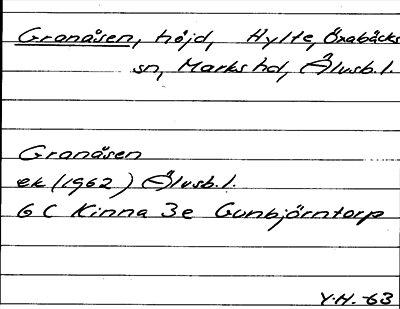 Granåsen, höjd, Hylte, Öxabäcks
sn, Marks hd, Älvsb. l.
Granåsen
ek (1962) Älvsb. l.
6 C Kinna 3e Gunbjörntorp
Y.H. -63